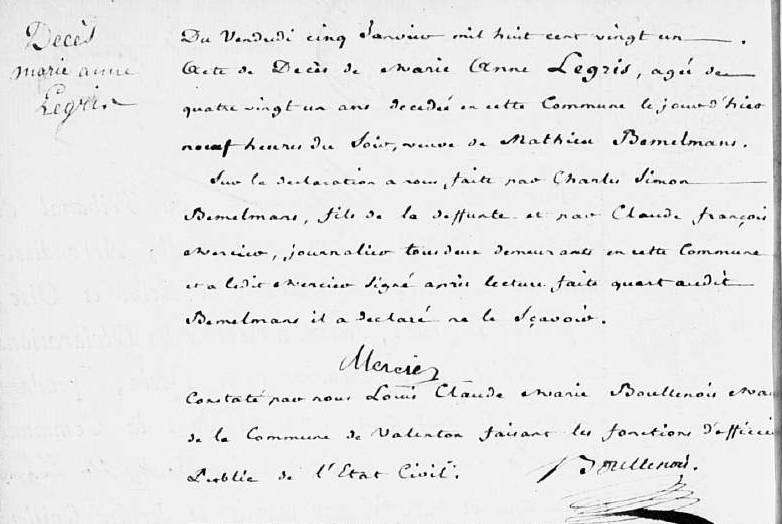 Decès
marie anne
Legris
Du Vendredi cinq Janvier mil huit cent vingt un.
Acte de Decès de Marie Anne Legris, agée de
quatre vingt un ans decedée en cette Commune le jour d'hier
neuf heures du Soir, veuve de Mathieu Bemelmans.
Sur la declaration a nous faite par Charles Simon
Bemelmans, fils de la deffunte et par Claude françois
Mercier, journalier tous deux demeurants en cette Commune
et a ledit Mercier Signé après lecture faite quant audit
Bemelmans il a declaré ne le Sçavoir.
Mercier
Constaté par nous Louis Claude Marie Boullenois
de la Commune de Valenton faisant les fonctions d'officier
Public de l'Etat Civil.
Boullenois.